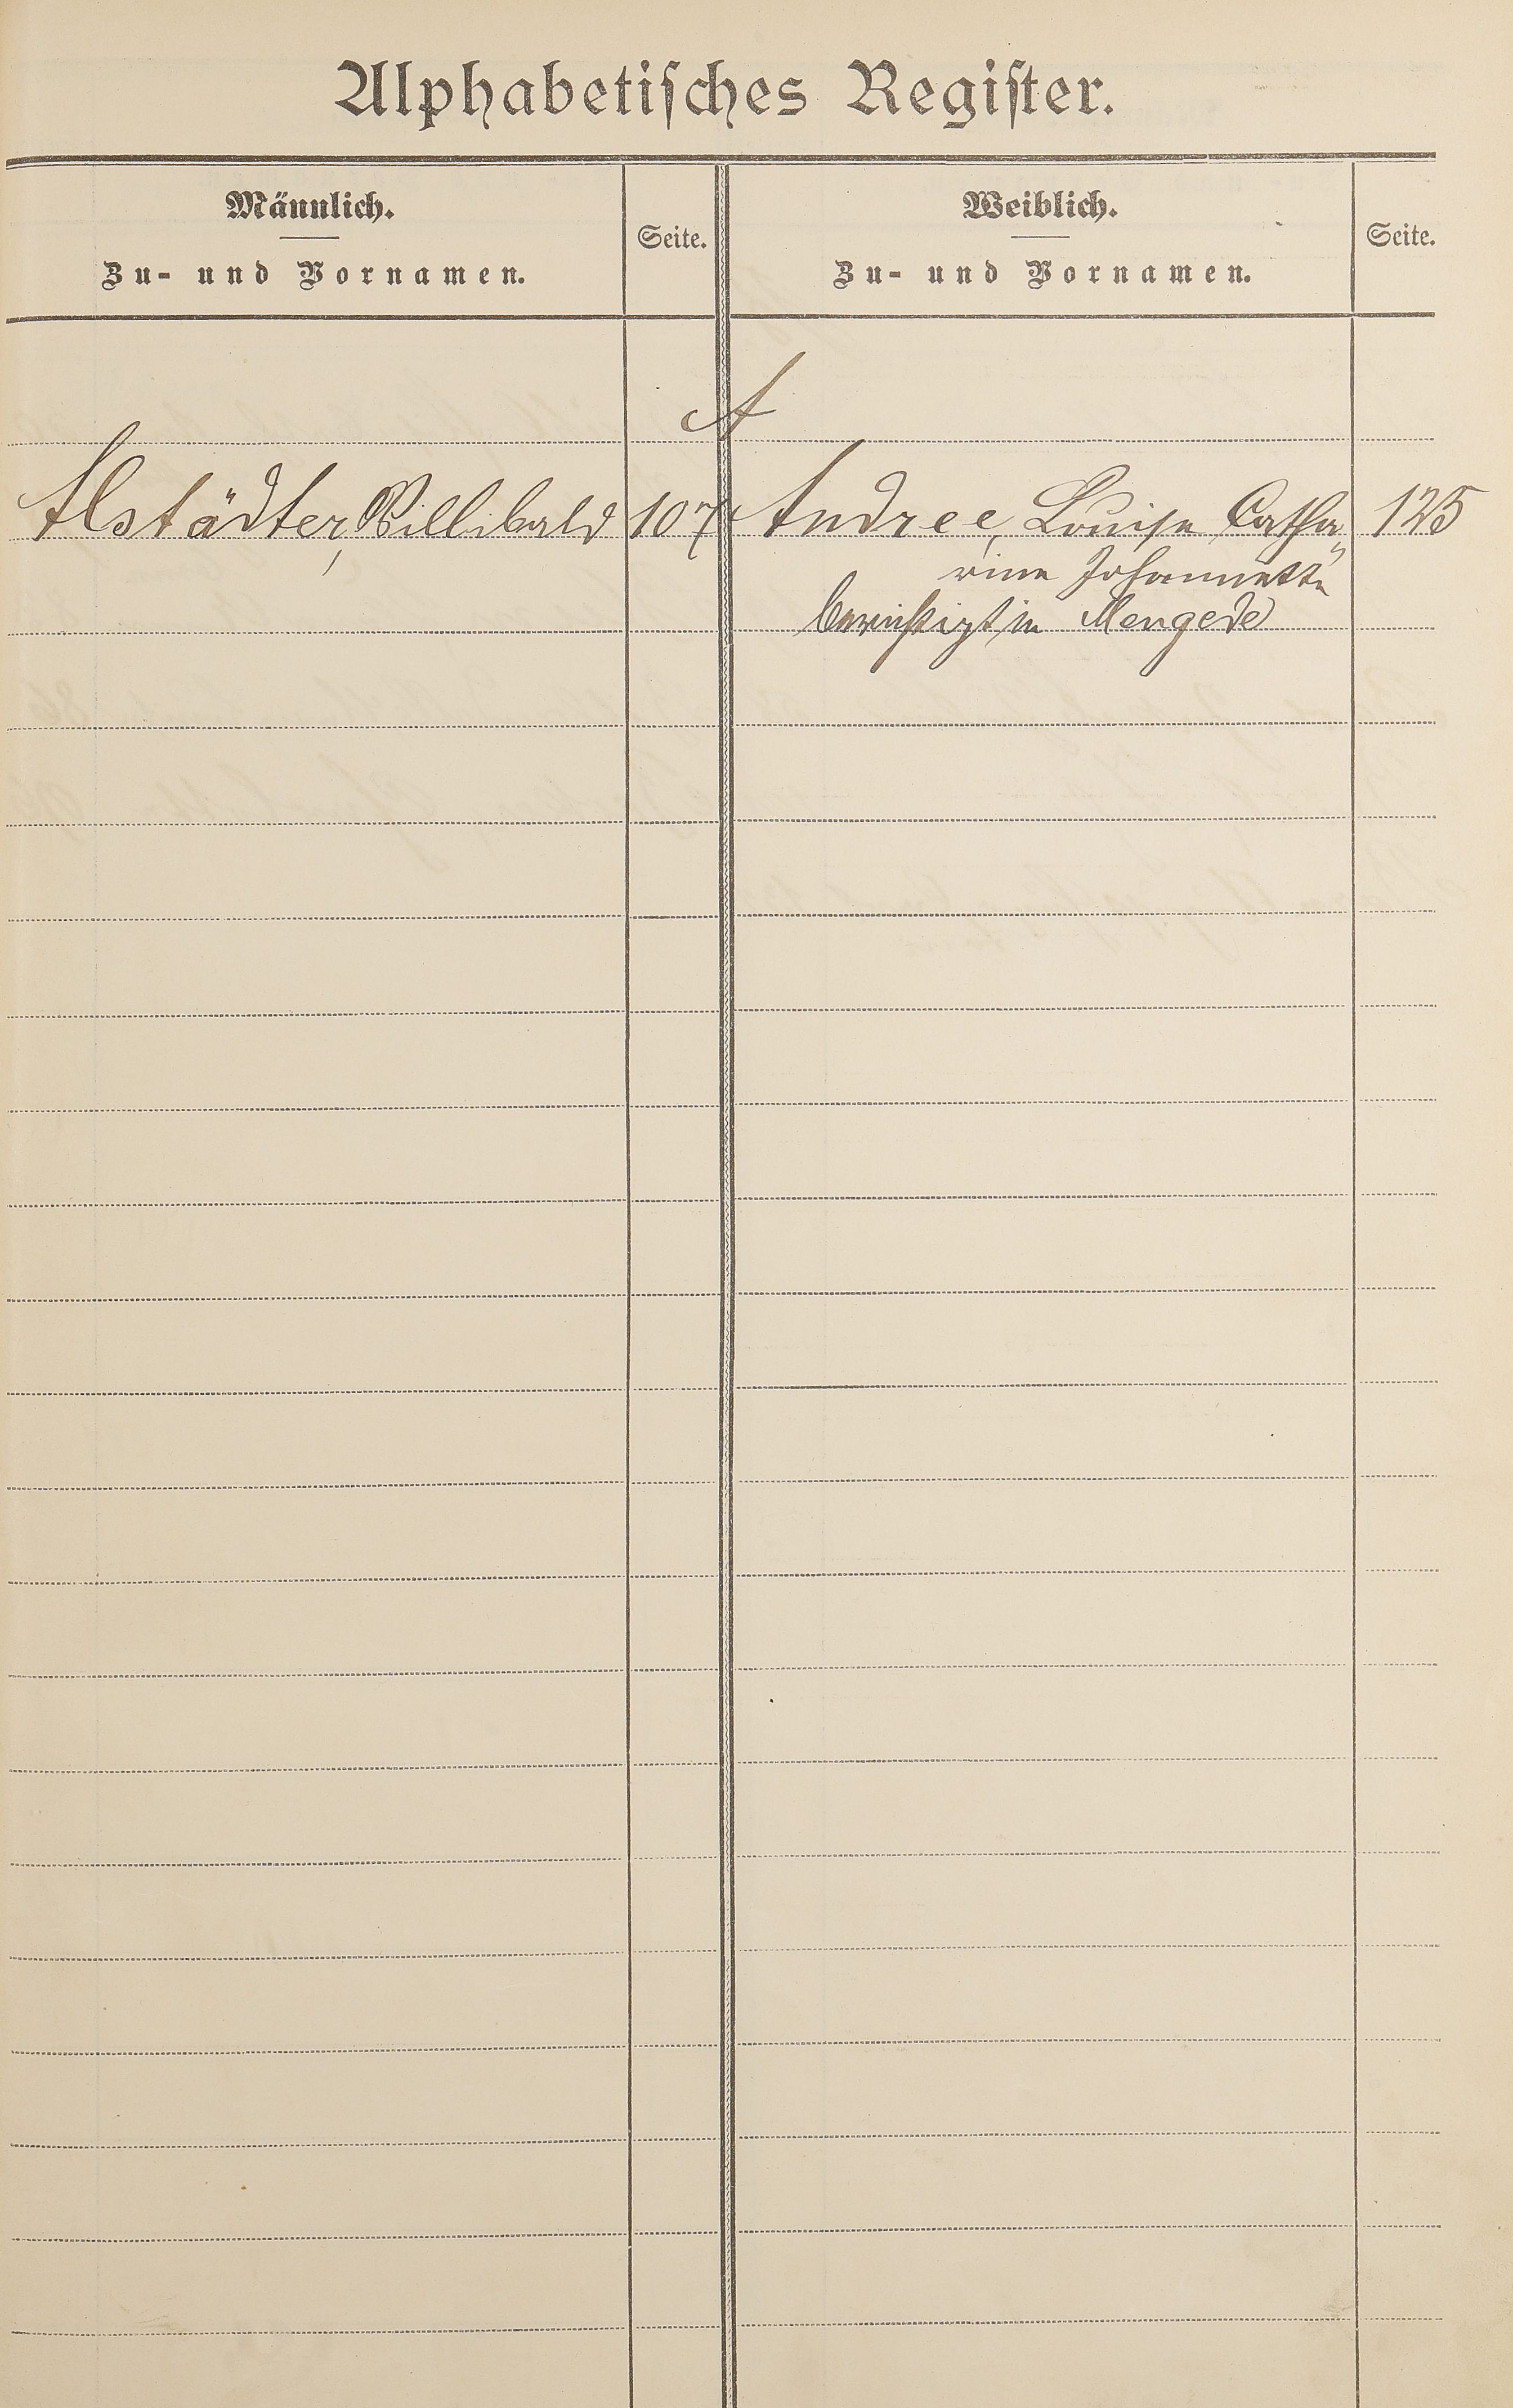 Alphabetisches Register.
Männlich.
Zu- und Vornamen.
Seite.
Weiblich.
Zu- und Vornamen.
Seite.
A
Alstädter, Willibald 107
Andree, Louise Catha- 125
rine Johannette
in Mengede